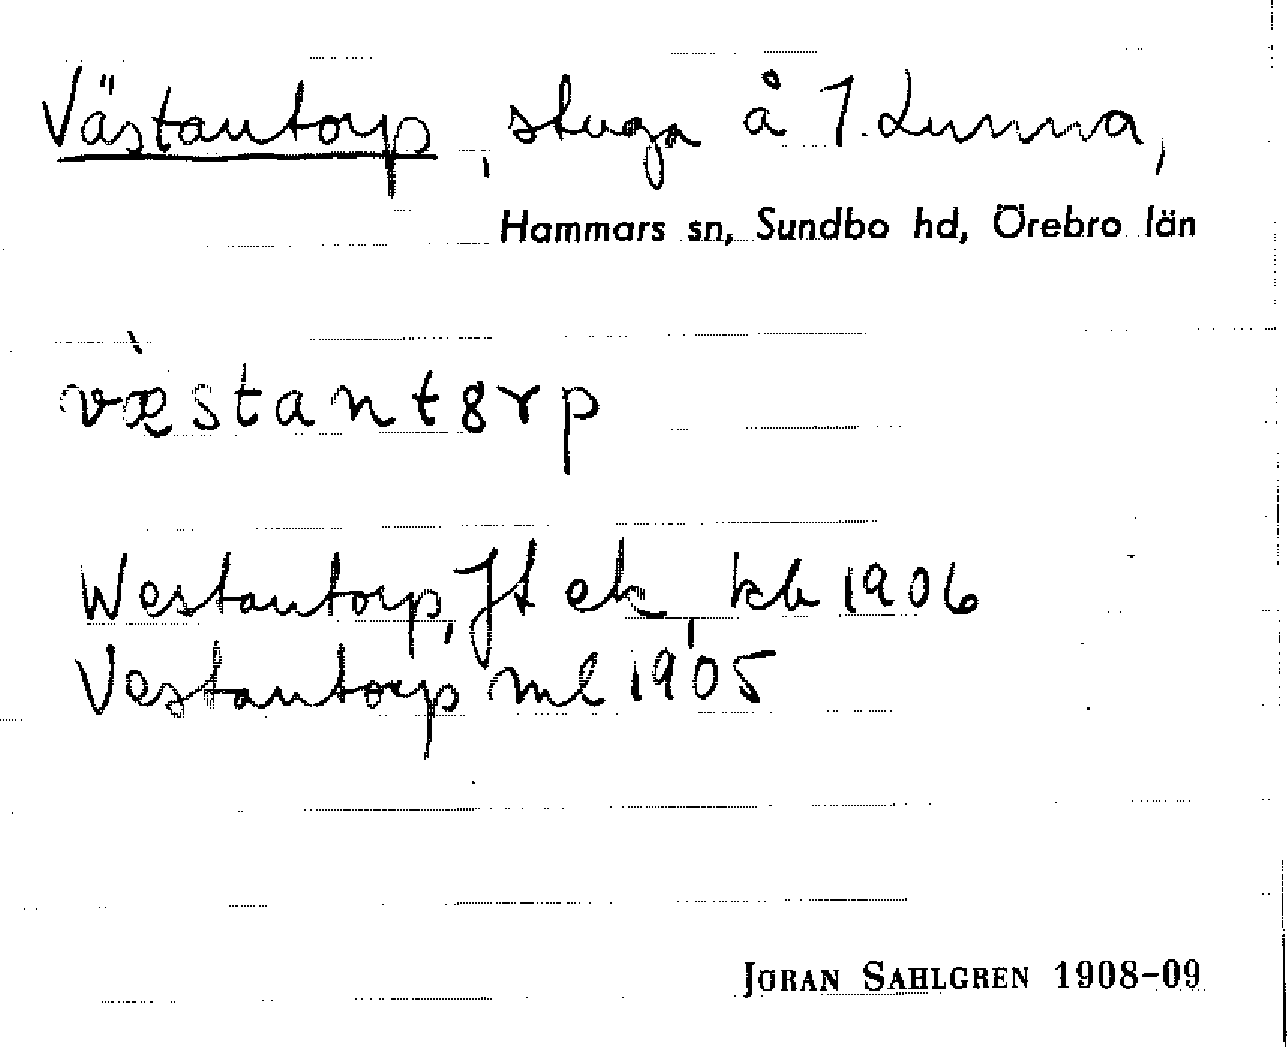 Västantorp, stuga å 7. Lunna,
Hammars sn, Sundbo hd, Örebro län
væ̀stantɞrp
Westantorp, Jt ek, kb 1906
Vestantorp ml 1905
JÖRAN SAHLGREN 1908-09